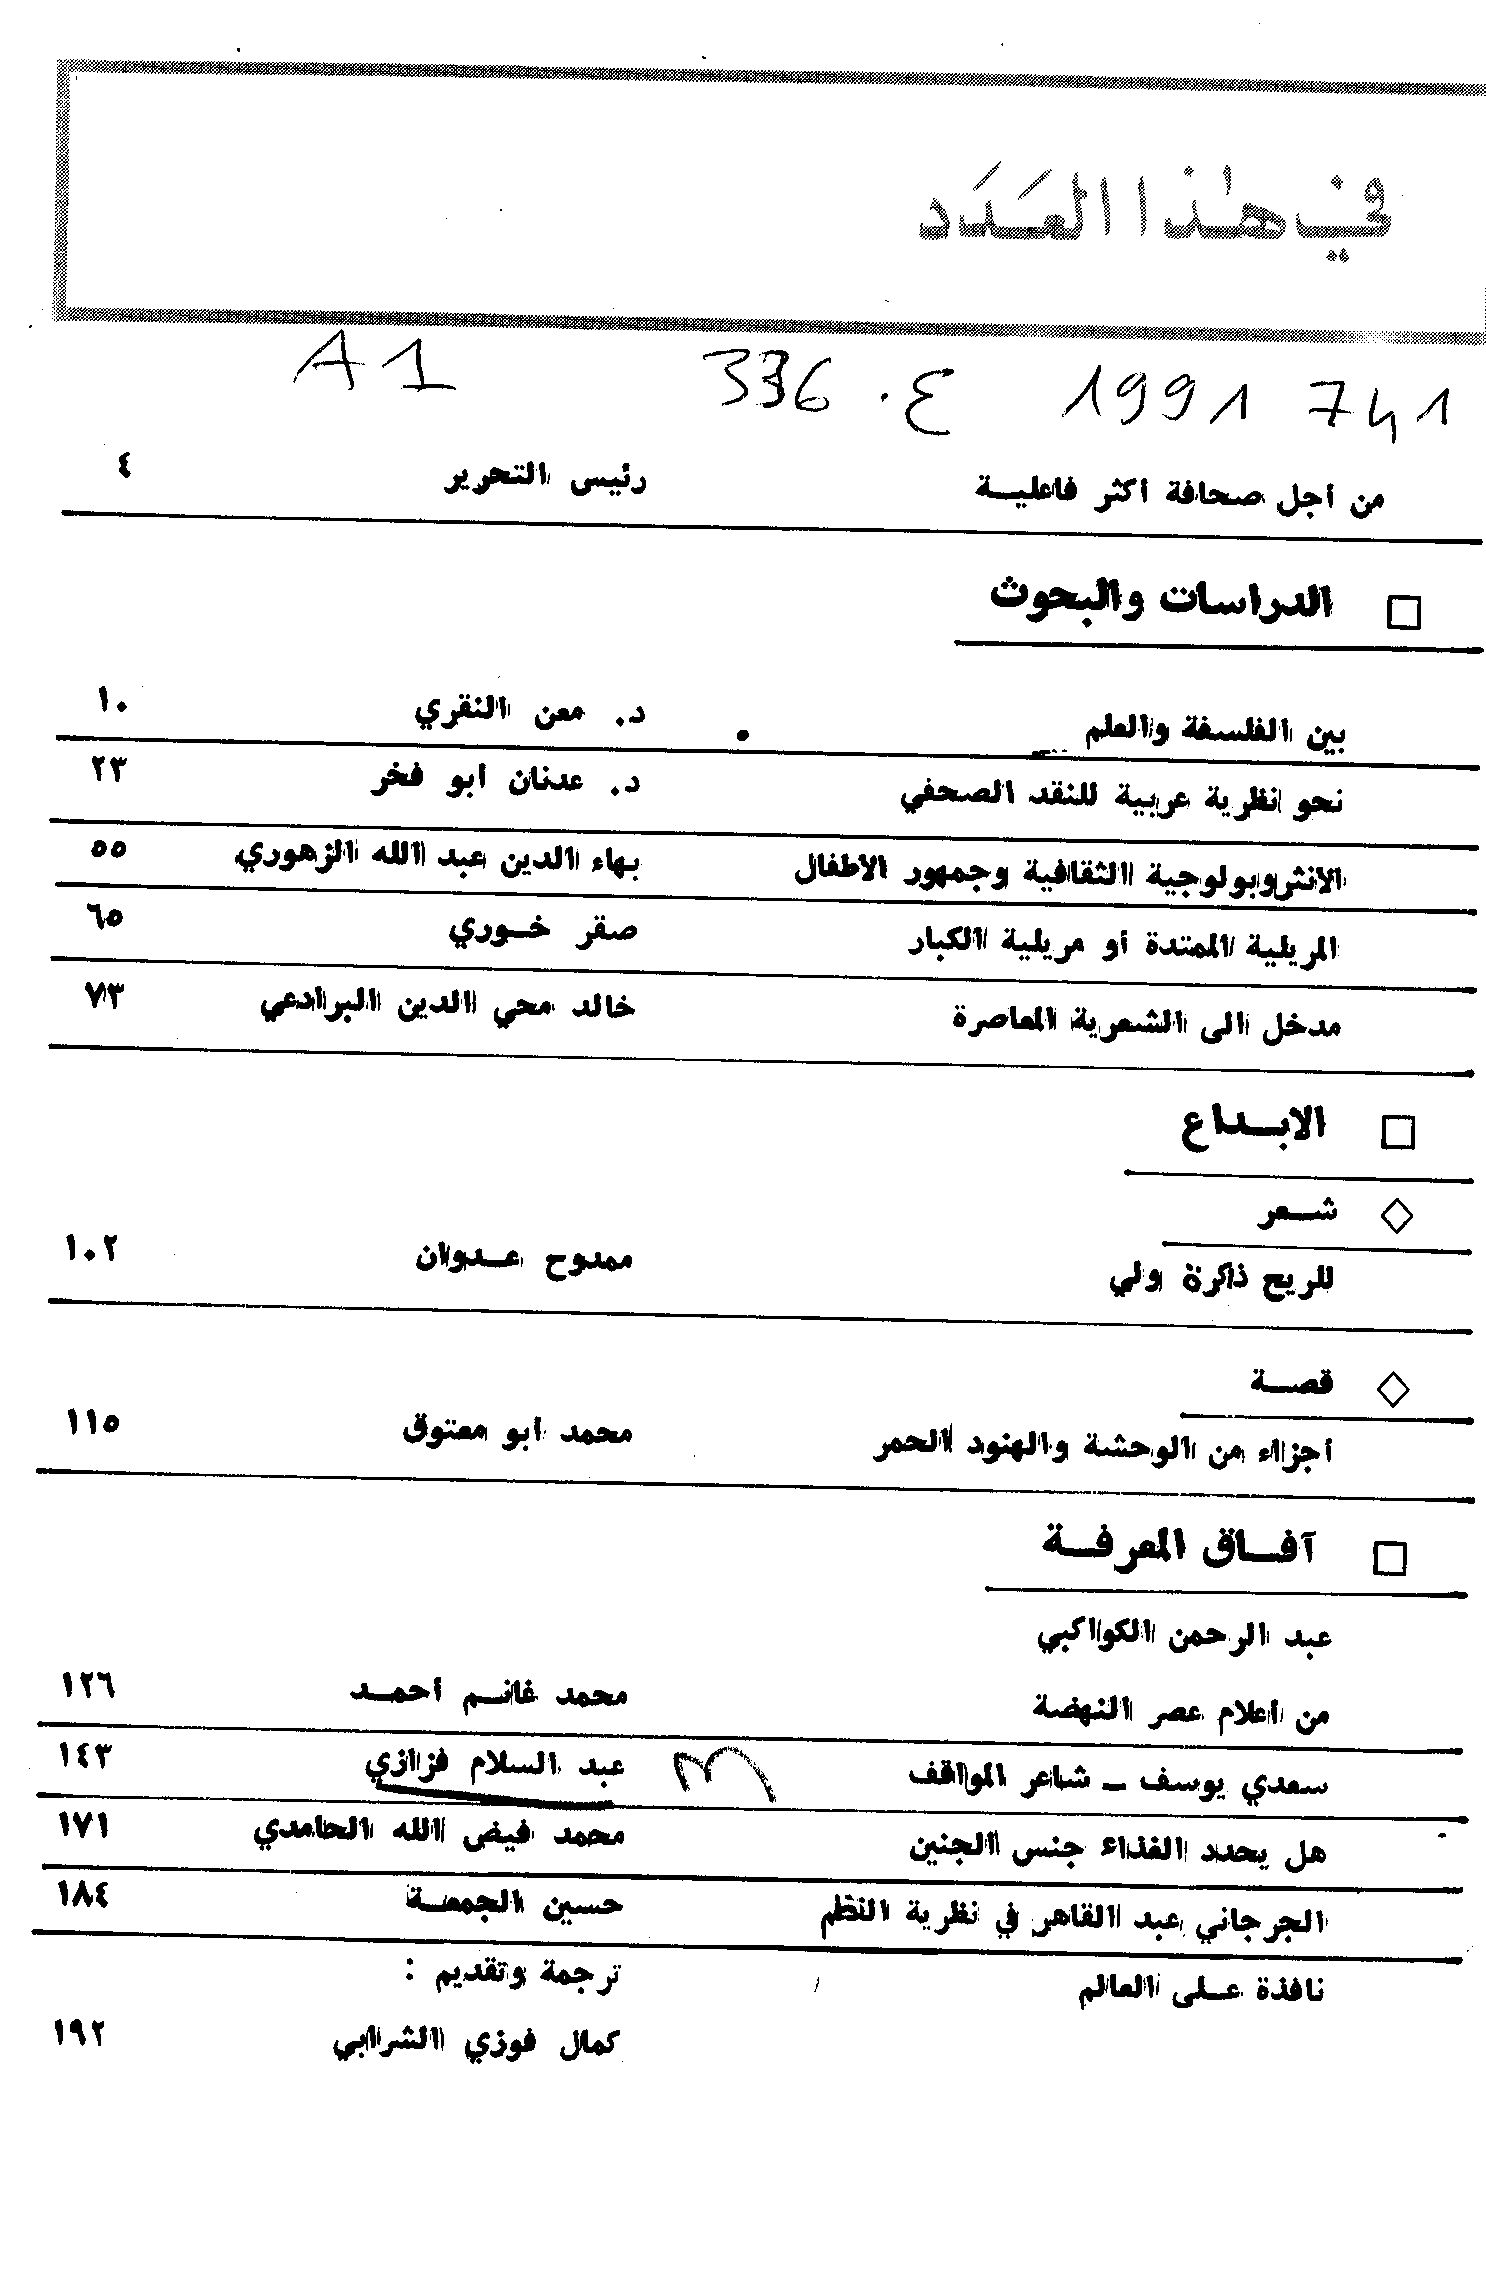 في هذا العدد
A1 336 . ع 1991 741
من أجل صحافة أكثر فاعليـــة رئيس التحرير ٤
الدراسات والبحوث
بين الفلسفة والعلم د. معن النقري ١٠
نحو نظرية عربية للنقد الصحفي د. عدنان ابو فخر ٢٣
الانثروبولوجية الثقافية وجمهور الاطفال بهاء الدين عبد الله الزهوري ٥٥
المريلية الممتدة أو مريلية الكبار صقر خــوري ٦٥
مدخل الى الشعرية المعاصرة خالد محي الدين البرادعي ٧٣
الابــداع
شــعر
للريح ذاكرة ولي ممدوح عــدوان ١٠٢
قصــة
أجزاء من الوحشة والهنود الحمر محمد ابو معتوق ١١٥
آفــاق المعرفــة
عبد الرحمن الكواكبي
من أعلام عصر النهضة محمد غانــم أحمــد ١٢٦
سعدي يوسف ــ شاعر المواقف عبد السلام فزازي ١٤٣
هل يحدد الغذاء جنس الجنين محمد فيض الله الحامدي ١٧١
الجرجاني عبد القاهر في نظرية النظم حسين الجمعــة ١٨٤
نافذة عــلى العالم ترجمة وتقديم :
كمال فوزي الشرابي ١٩٢